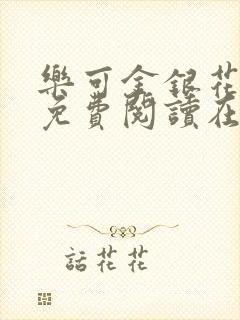 樂可金銀花
免費閱讀在
話花花